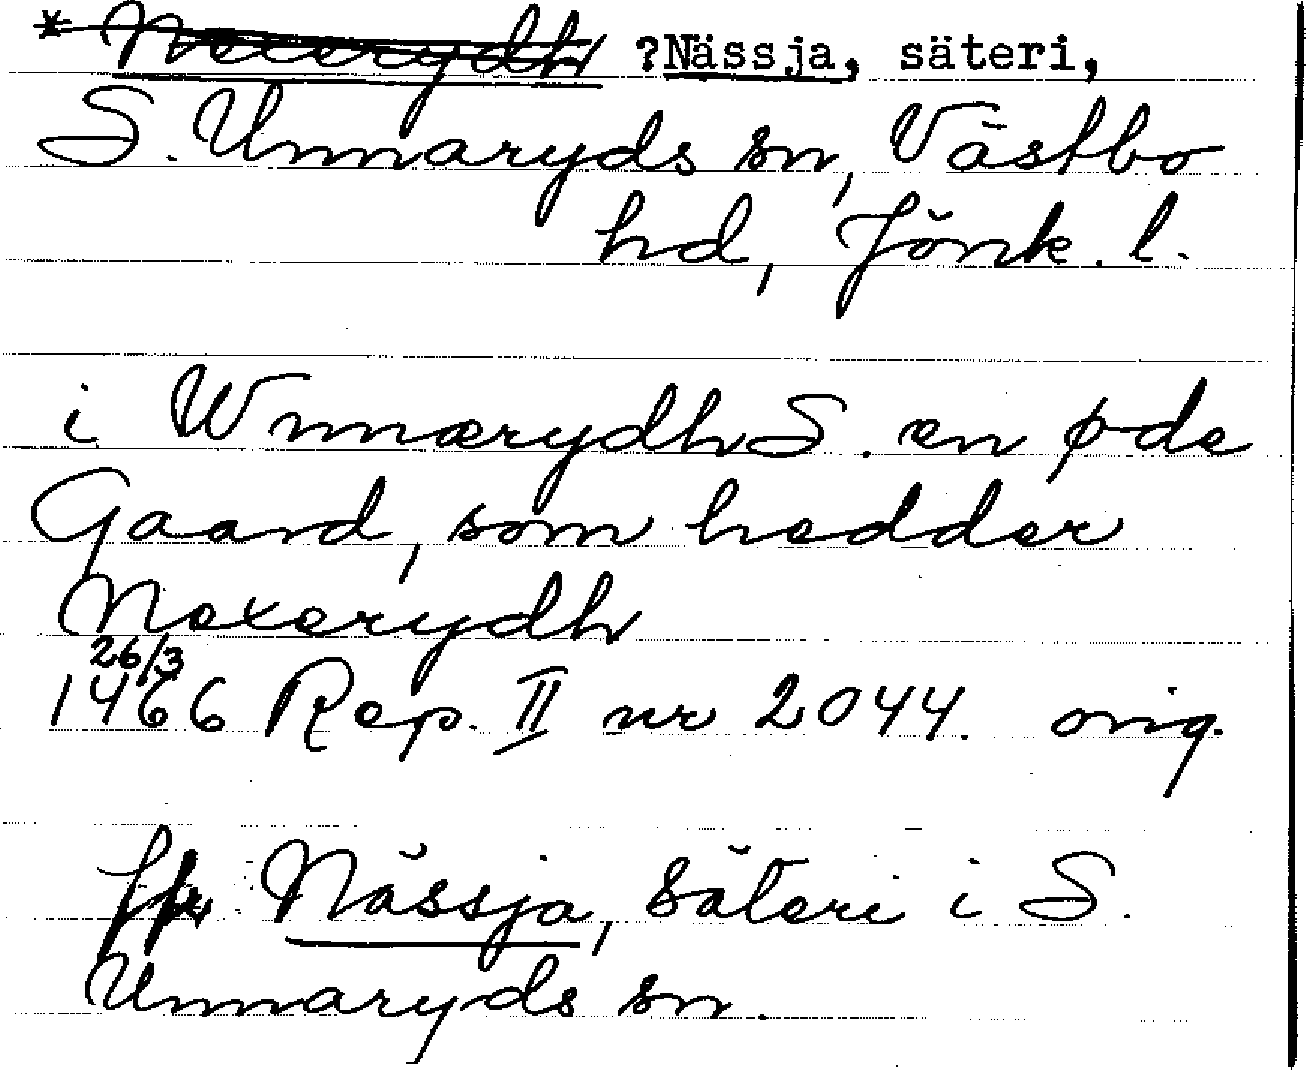 * Nexerydh ?Nässja, säteri,
S. Unnaryds sn, Västbo
hd, Jönk. l.
i Wnnærydh S. en øde
Gaard, som hedder
Nexerydh
26/3
1466 Rep. II nr 2044. orig.
Nässja, säteri i S.
Unnaryds sn.